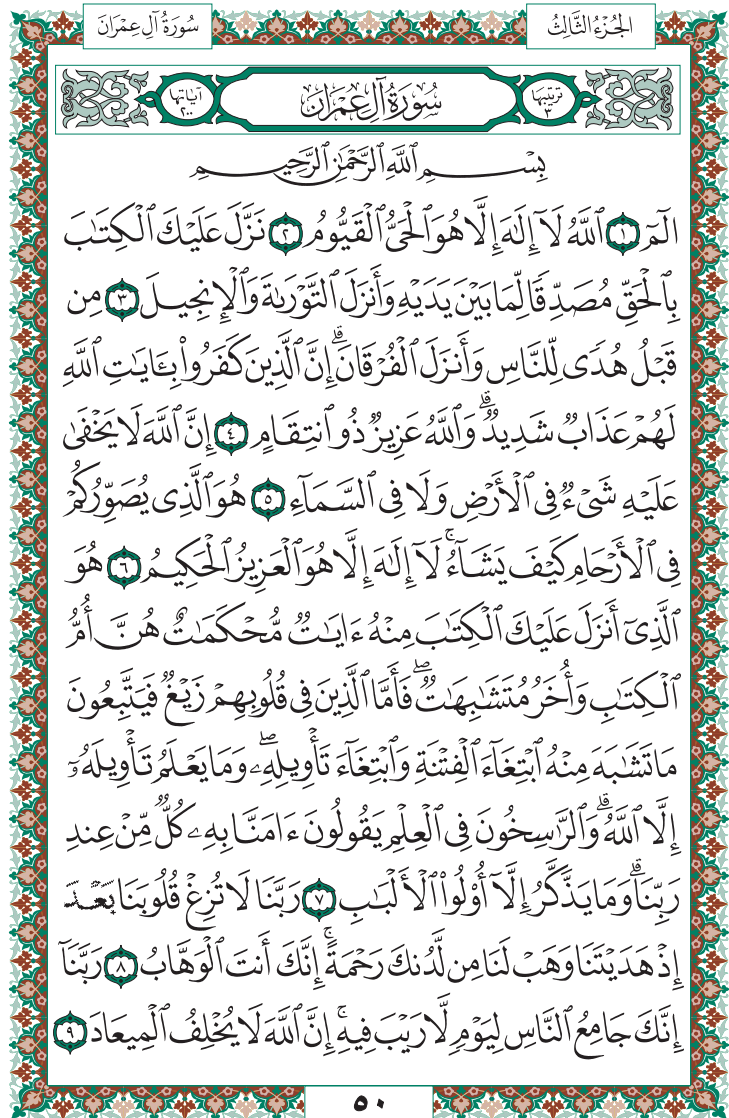 الجُزْءُ الثَّالِثُ
سُورَةُ آلِ عِمْرَانَ
تَرْتِيبُهَا ٣
سُورَةُ آلِ عِمْرَانَ
آيَاتُهَا ٢٠٠
بِسْمِ ٱللَّهِ ٱلرَّحْمَٰنِ ٱلرَّحِيمِ
الٓمٓ ١ ٱللَّهُ لَآ إِلَٰهَ إِلَّا هُوَ ٱلْحَىُّ ٱلْقَيُّومُ ٢ نَزَّلَ عَلَيْكَ ٱلْكِتَٰبَ
بِٱلْحَقِّ مُصَدِّقًا لِّمَا بَيْنَ يَدَيْهِ وَأَنزَلَ ٱلتَّوْرَىٰةَ وَٱلْإِنجِيلَ ٣ مِن
قَبْلُ هُدًى لِّلنَّاسِ وَأَنزَلَ ٱلْفُرْقَانَۗ إِنَّ ٱلَّذِينَ كَفَرُوا۟ بِـَٔايَٰتِ ٱللَّهِ
لَهُمْ عَذَابٌ شَدِيدٌۗ وَٱللَّهُ عَزِيزٌ ذُو ٱنتِقَامٍ ٤ إِنَّ ٱللَّهَ لَا يَخْفَىٰ
عَلَيْهِ شَىْءٌ فِى ٱلْأَرْضِ وَلَا فِى ٱلسَّمَآءِ ٥ هُوَ ٱلَّذِى يُصَوِّرُكُمْ
فِى ٱلْأَرْحَامِ كَيْفَ يَشَآءُۚ لَآ إِلَٰهَ إِلَّا هُوَ ٱلْعَزِيزُ ٱلْحَكِيمُ ٦ هُوَ
ٱلَّذِىٓ أَنزَلَ عَلَيْكَ ٱلْكِتَٰبَ مِنْهُ ءَايَٰتٌ مُّحْكَمَٰتٌ هُنَّ أُمُّ
ٱلْكِتَٰبِ وَأُخَرُ مُتَشَٰبِهَٰتٌۖ فَأَمَّا ٱلَّذِينَ فِى قُلُوبِهِمْ زَيْغٌ فَيَتَّبِعُونَ
مَا تَشَٰبَهَ مِنْهُ ٱبْتِغَآءَ ٱلْفِتْنَةِ وَٱبْتِغَآءَ تَأْوِيلِهِۦۖ وَمَا يَعْلَمُ تَأْوِيلَهُۥٓ
إِلَّا ٱللَّهُۗ وَٱلرَّٰسِخُونَ فِى ٱلْعِلْمِ يَقُولُونَ ءَامَنَّا بِهِۦ كُلٌّ مِّنْ عِندِ
رَبِّنَاۗ وَمَا يَذَّكَّرُ إِلَّآ أُو۟لُوا۟ ٱلْأَلْبَٰبِ ٧ رَبَّنَا لَا تُزِغْ قُلُوبَنَا بَعْدَ
إِذْ هَدَيْتَنَا وَهَبْ لَنَا مِن لَّدُنكَ رَحْمَةًۚ إِنَّكَ أَنتَ ٱلْوَهَّابُ ٨ رَبَّنَآ
إِنَّكَ جَامِعُ ٱلنَّاسِ لِيَوْمٍ لَّا رَيْبَ فِيهِۚ إِنَّ ٱللَّهَ لَا يُخْلِفُ ٱلْمِيعَادَ ٩
٥٠